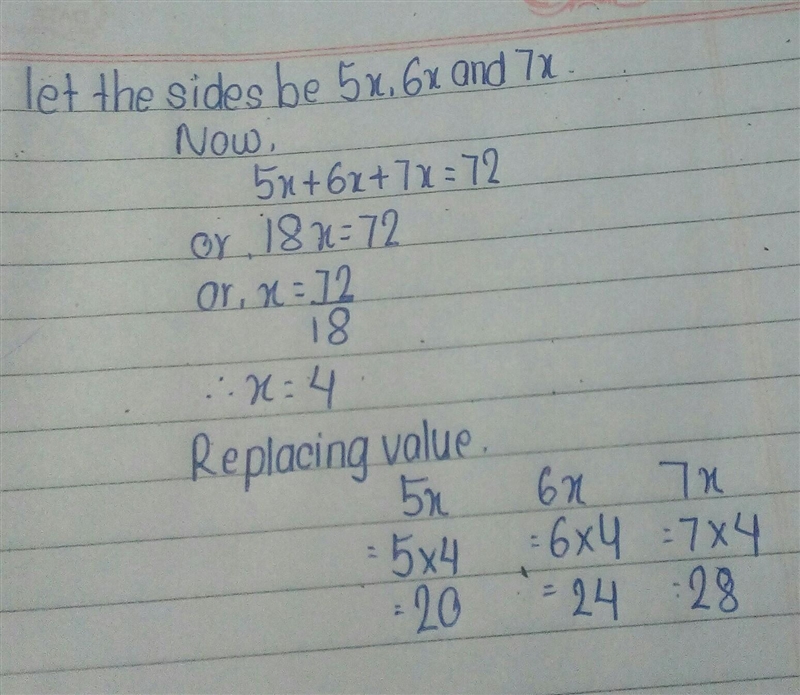 let the sides be 5x, 6x and 7x.
Now,
5x+6x+7x=72
or, 18x=72
or, x=72
18
∴ x=4
Replacing value.
5x 6x 7x
=5×4 =6×4 =7×4
=20 =24 =28